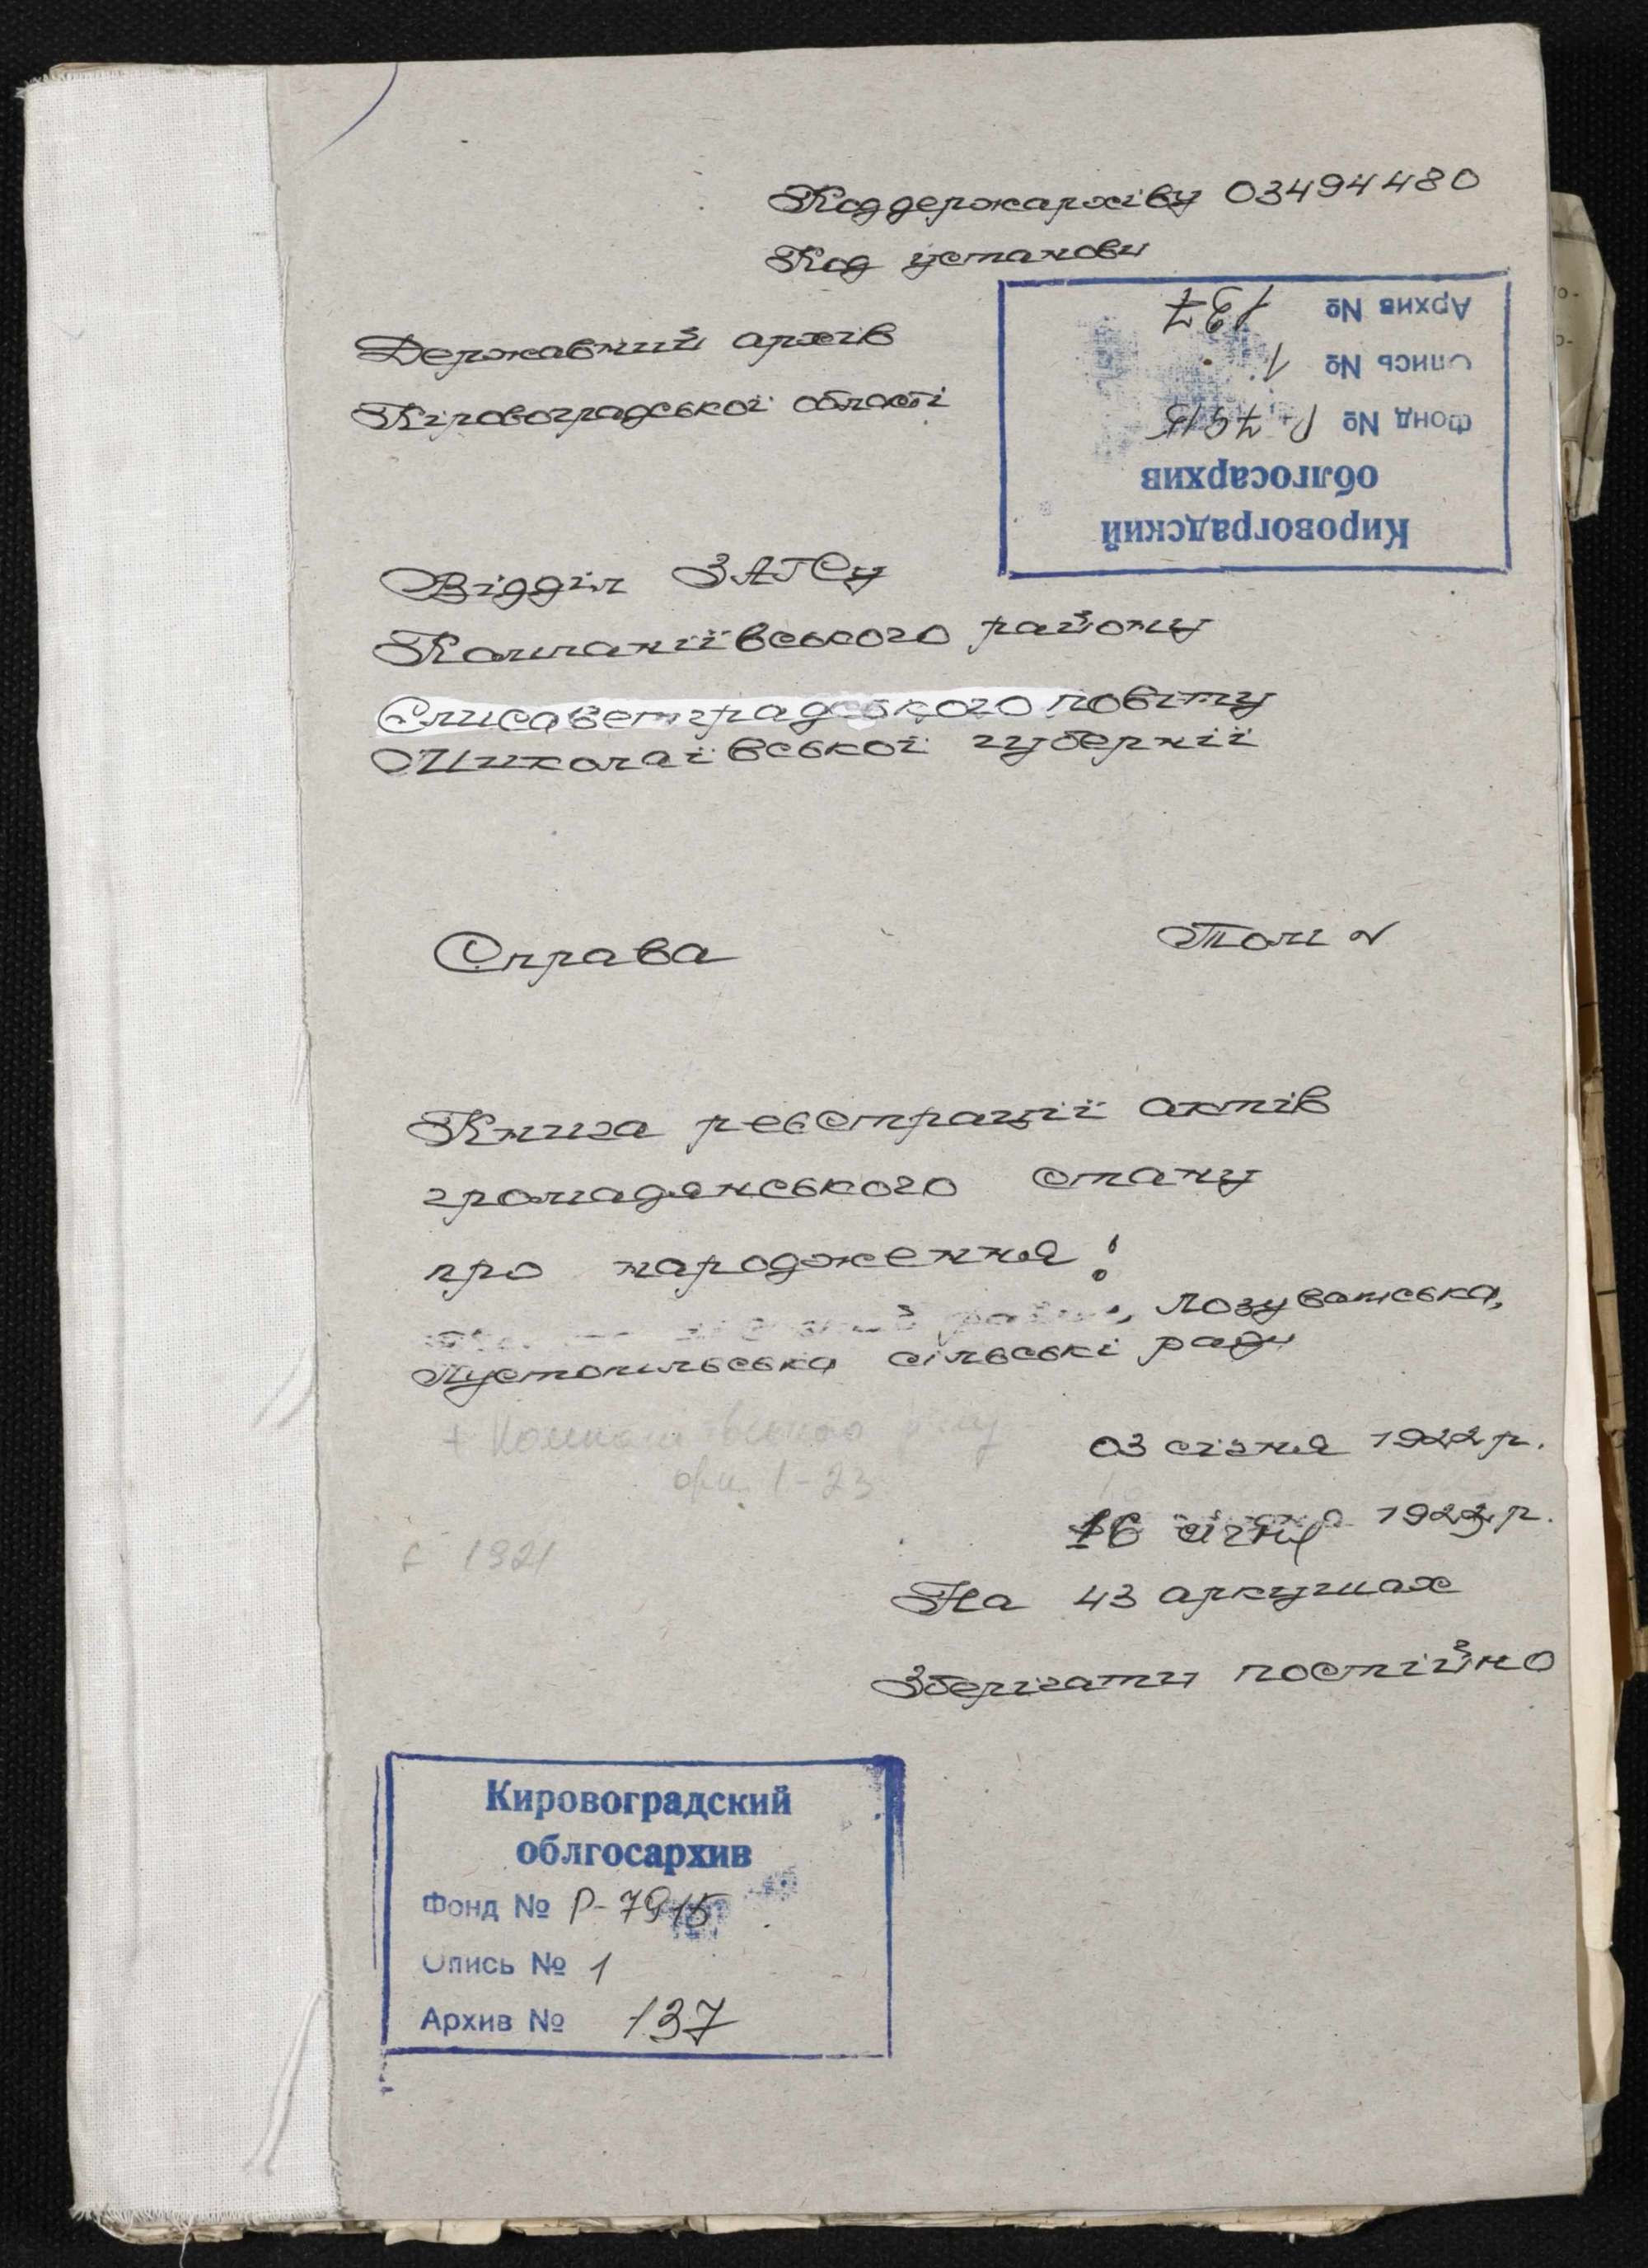 Код держархіву 03494480
Код установи
Державний архів
Кіровоградської області
Кировоградский
облгосархив
Фонд № Р-7915
Опись № 1
Архив № 137
Відділ ЗАГСу
Компаніївського району
Єлисаветградського повіту
Миколаївської губернії
Справа
Том №
Книга реєстрації актів
громадянського стану
про народження:
, Лозуватська,
Пустопільська сільські ради
+
1-23
03 січня 1922 р.
16 січня 1922 р.
є 1921
На 43 аркушах
Зберігати постійно
Кировоградский
облгосархив
Фонд № Р-7915
Опись № 1
Архив № 137